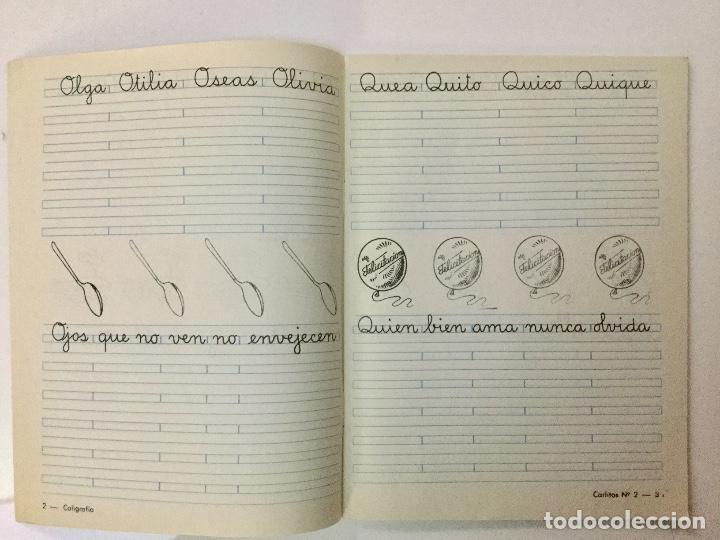 Olga Otilia Oseas Olivia
Ojos que no ven no envejecen
2 — Caligrafía
Quea Quito Quico Quique
Felicitacion Felicitacion Felicitacion Felicitacion
Quien bien ama nunca olvida
Carlitos Nº 2 — 3
todocoleccion.net